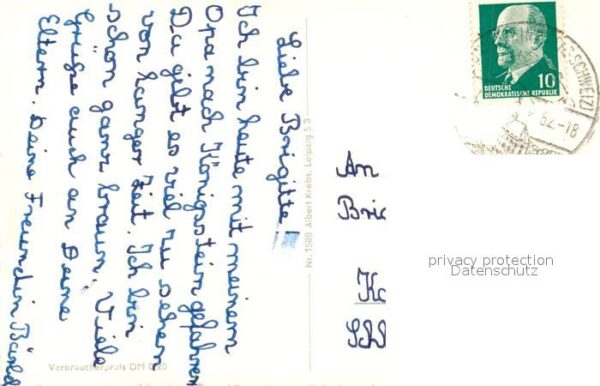 Liebe Brigitte!
Ich bin heute mit meinem
Opa nach Königsstein gefahren
Da gibt es viel zu sehen
von langer Zeit. Ich bin
schon ganz braun. Viele
Grüße auch an Deine
Eltern. Deine Freundin
Verbraucherpreis DM 0,20
Nr. 1588 Albert Krebs, Leipzig S 3
DEUTSCHE
DEMOKRATISCHE REPUBLIK
10
SCHWEIZ)
62.-18
An
Brig
Kö
privacy protection
Datenschutz